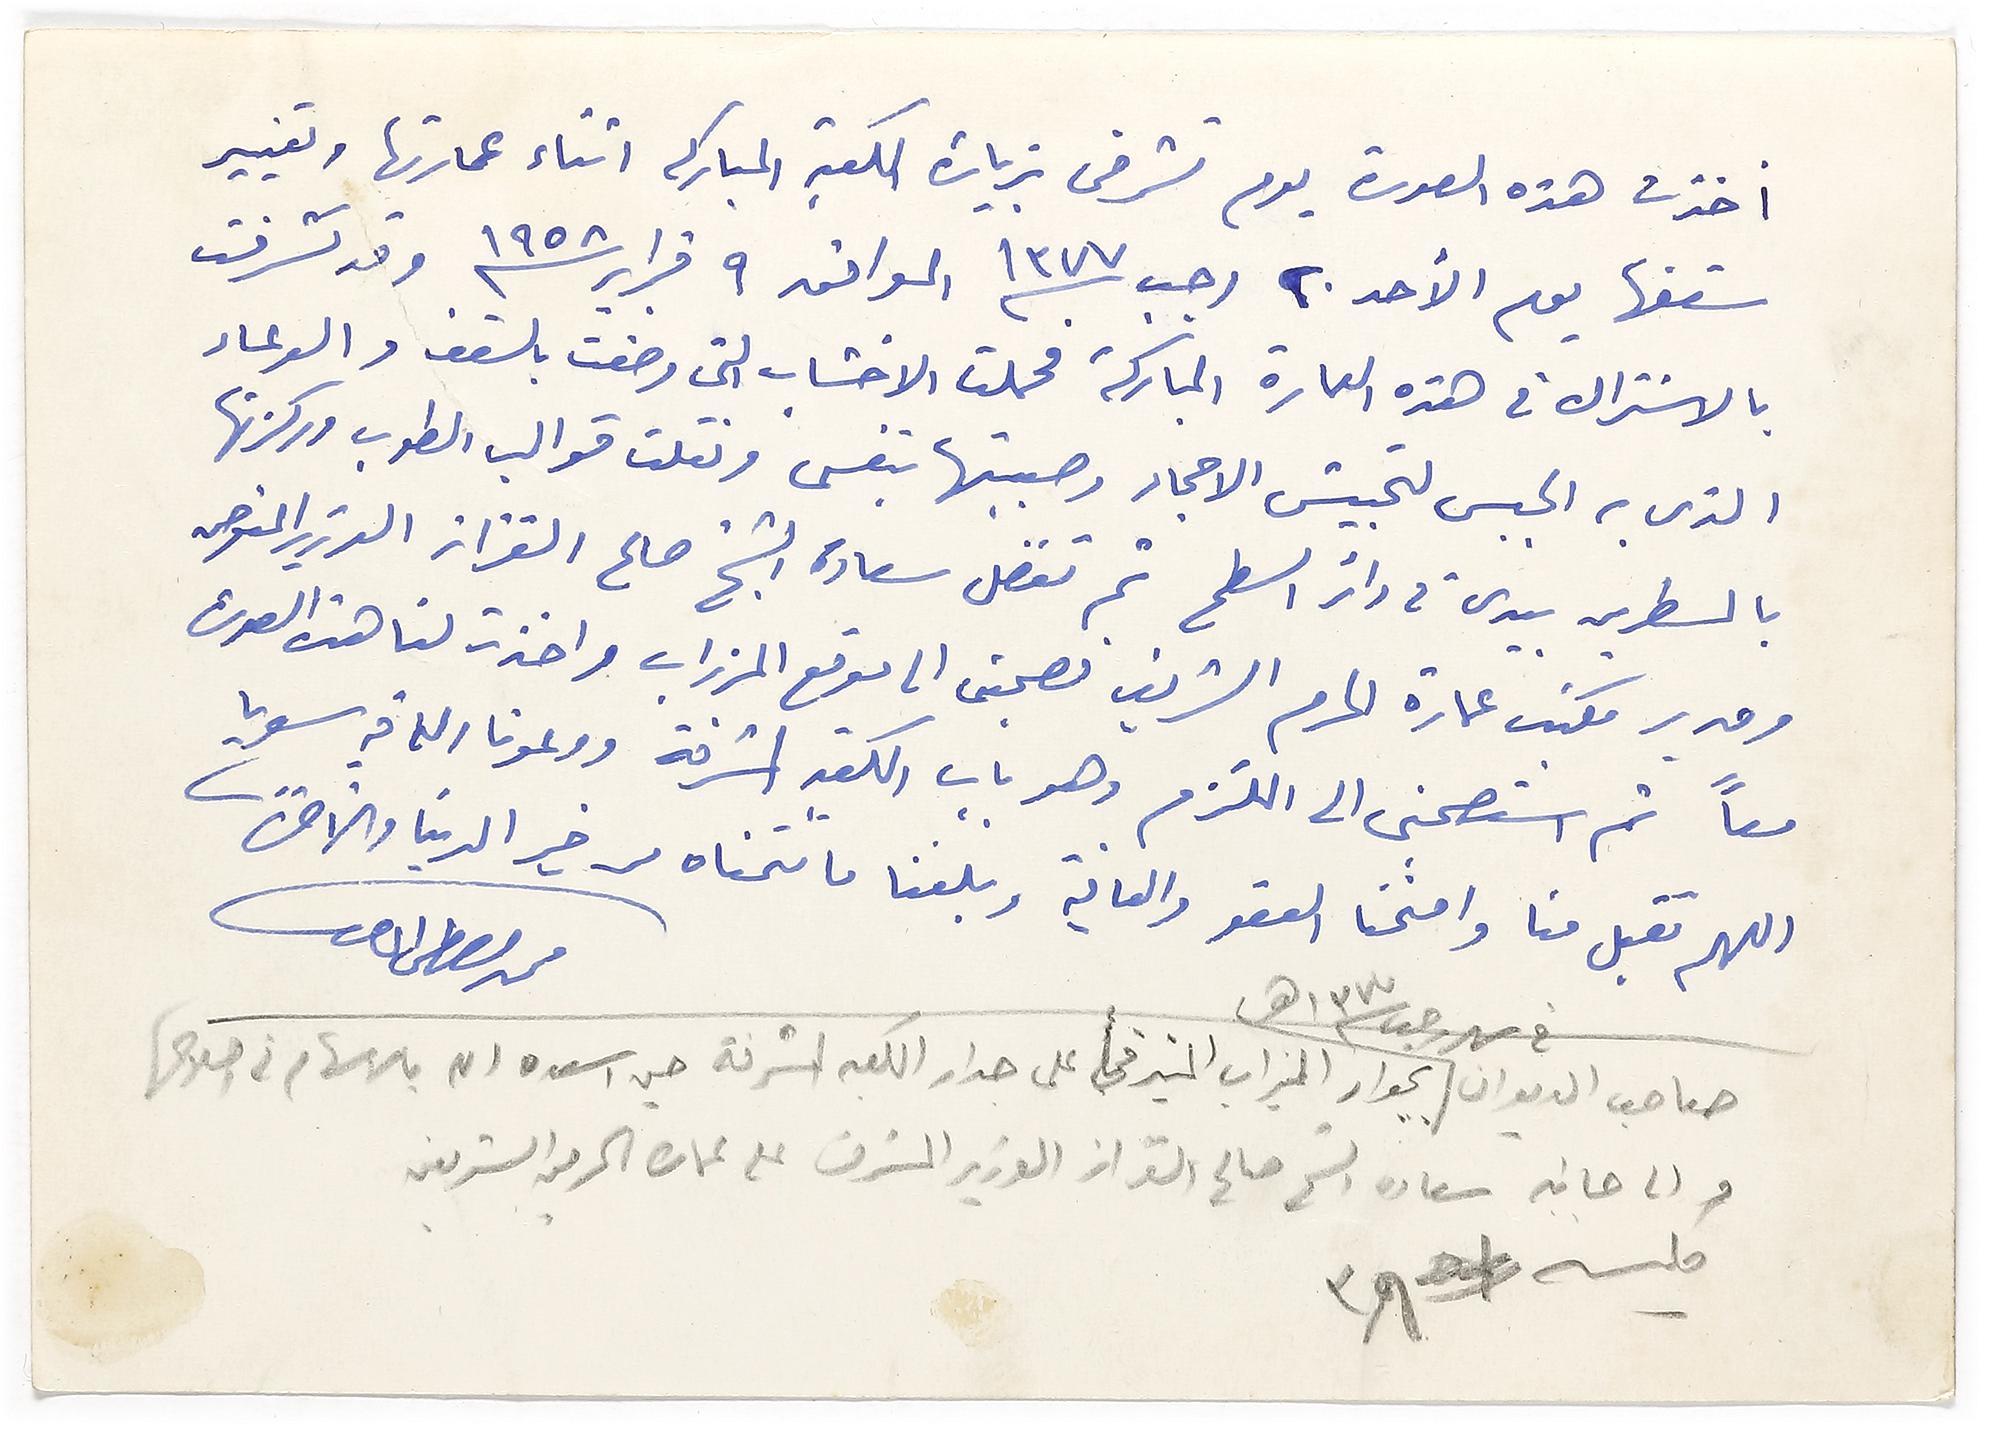 أخذت هذه الصورة يوم تشرفى بزيارة الكعبة المباركه اثناء عمارتها وتغيير
سقفها يوم الأحد ٢٠ رجب ١٣٧٧ الموافق ٩ فبراير ١٩٥٨ وقد تشرفت
بالاشتراك فى هذه العمارة المباركة فحملت الاخشاب التى وضعت بالسقف والوعاء
الذى به الجبس لتجبيش الاحجار وصببتها بنفسى ونقلت قوالب الطوب وركزتها
بالمسطرين بيدى فى دائر السطح ثم تفضل سعادة الشيخ صالح القزاز الوزير المفوض
ومدير مكتب عمارة الحرم الشريف فصحبنى الى موقع المزراب واخذت لنا هذه الصورة
معاً ثم استصحبنى الى الملتزم وهو باب الكعبة المشرفة ودعونا الله فيه سويا
اللهم تقبل منا وامنحنا العفو والعافية وبلغنا ما نتمناه من خير الدنيا والآخرة
فى رجب ١٣٧٧هـ
صاحب الديوان بجوار الميزاب على جدار الكعبه المشرفة حين اسعده الله بالاسهام فى اصلاحها
والى جانبه سعادة الشيخ صالح القزاز الوزير المشرف على عمارة الحرمين الشريفين